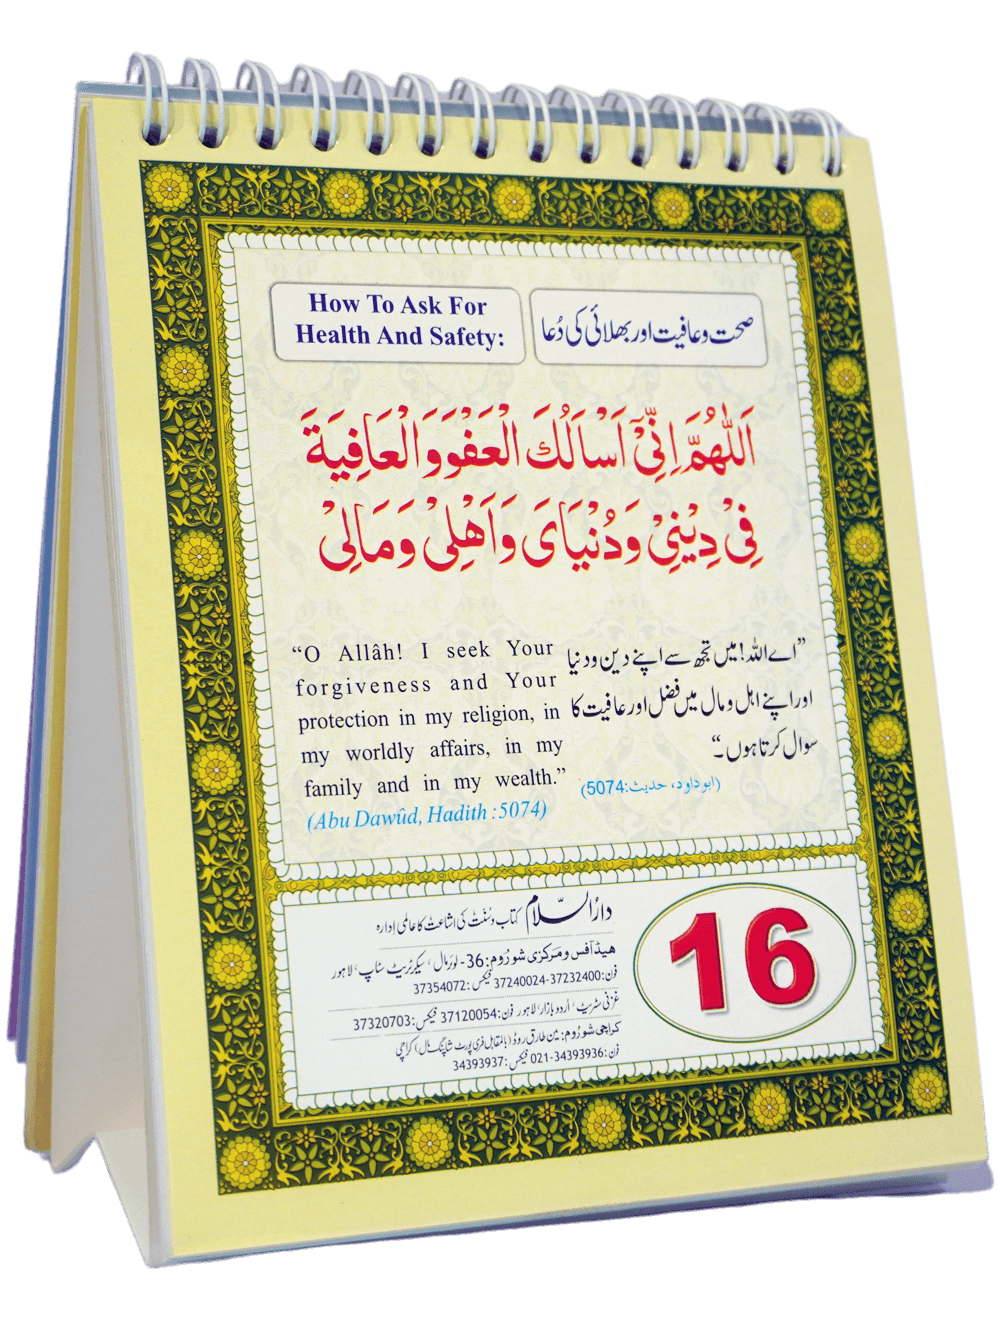 How To Ask For
Health And Safety:
صحت وعافیت اور بھلائی کی دُعا
اَللّٰهُمَّ اِنِّیْٓ اَسْاَلُكَ الْعَفْوَ وَالْعَافِیَةَ
فِیْ دِیْنِیْ وَدُنْیَایَ وَاَهْلِیْ وَمَالِیْ
“O Allâh! I seek Your
forgiveness and Your
protection in my religion, in
my worldly affairs, in my
family and in my wealth.”
(Abu Dawûd, Hadith :5074)
”اے اللہ! میں تجھ سے اپنے دین و دنیا
اور اپنے اہل و مال میں فضل اور عافیت کا
سوال کرتا ہوں۔“
(ابوداود، حدیث:5074)
دارُالسّلام کتاب و سُنّت کی اشاعت کا عالمی اِدارہ
هیڈ آفس و مرکزی شورُوم: 36- لوئر مال، سیکرٹریٹ سٹاپ، لاہور
فون: 37232400-37240024 فیکس: 37354072
غزنی سٹریٹ، اُردو بازار، لاہور فون: 37120054 فیکس: 37320703
کراچی شورُوم: مین طارق روڈ (بالمقابل فری پورٹ شاپنگ مال) کراچی
فون: 34393936-021 فیکس: 34393937
16